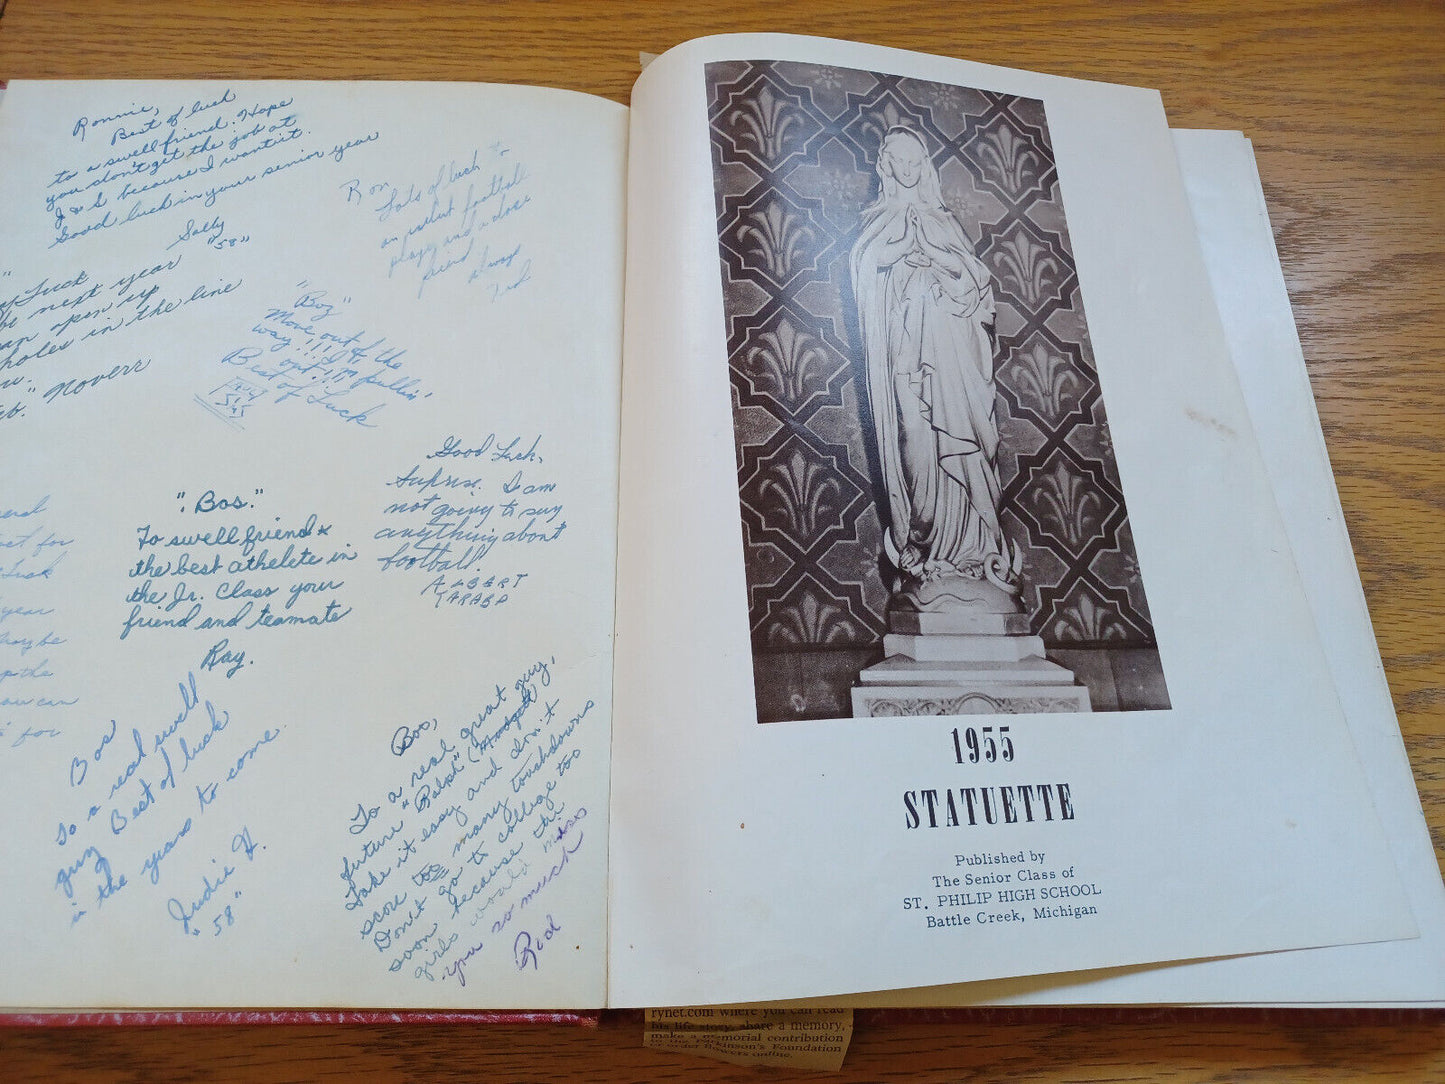 Ronnie,
Best of luck
to a swell friend. Hope
you don't get the job at
J & S because I want it.
Good luck in your senior year
Sally
"58"
Ron
Lots of luck to
football
player and a close
friend
always
Luck
be next year
open up
holes in the line
" Noverr
"Boz"
Move out of the
way!!!
opt!!!
pullin'
Best of Luck
Good Luck.
Suprise. I am
not going to say
anything about
football.
ALBERT
TARABA
"Bos."
To swell friend &
the best athelete in
the Jr. Class your
friend and teamate
Ray.
for
year
maybe
up the
can
for
Bos
To a real swell
guy Best of luck
in the years to come.
Judie H.
"58"
Bos,
To a real great guy,
future "Ralph" (
Take it easy and don't
score too many touchdowns
Don't go to college too
soon because the
girls would miss
you so much
Rod
1955
STATUETTE
Published by
The Senior Class of
ST. PHILIP HIGH SCHOOL
Battle Creek, Michigan
rynet.com where you can read
his life story, share a memory,
make a memorial contribution
to the Parkinson's Foundation
or order flowers online.